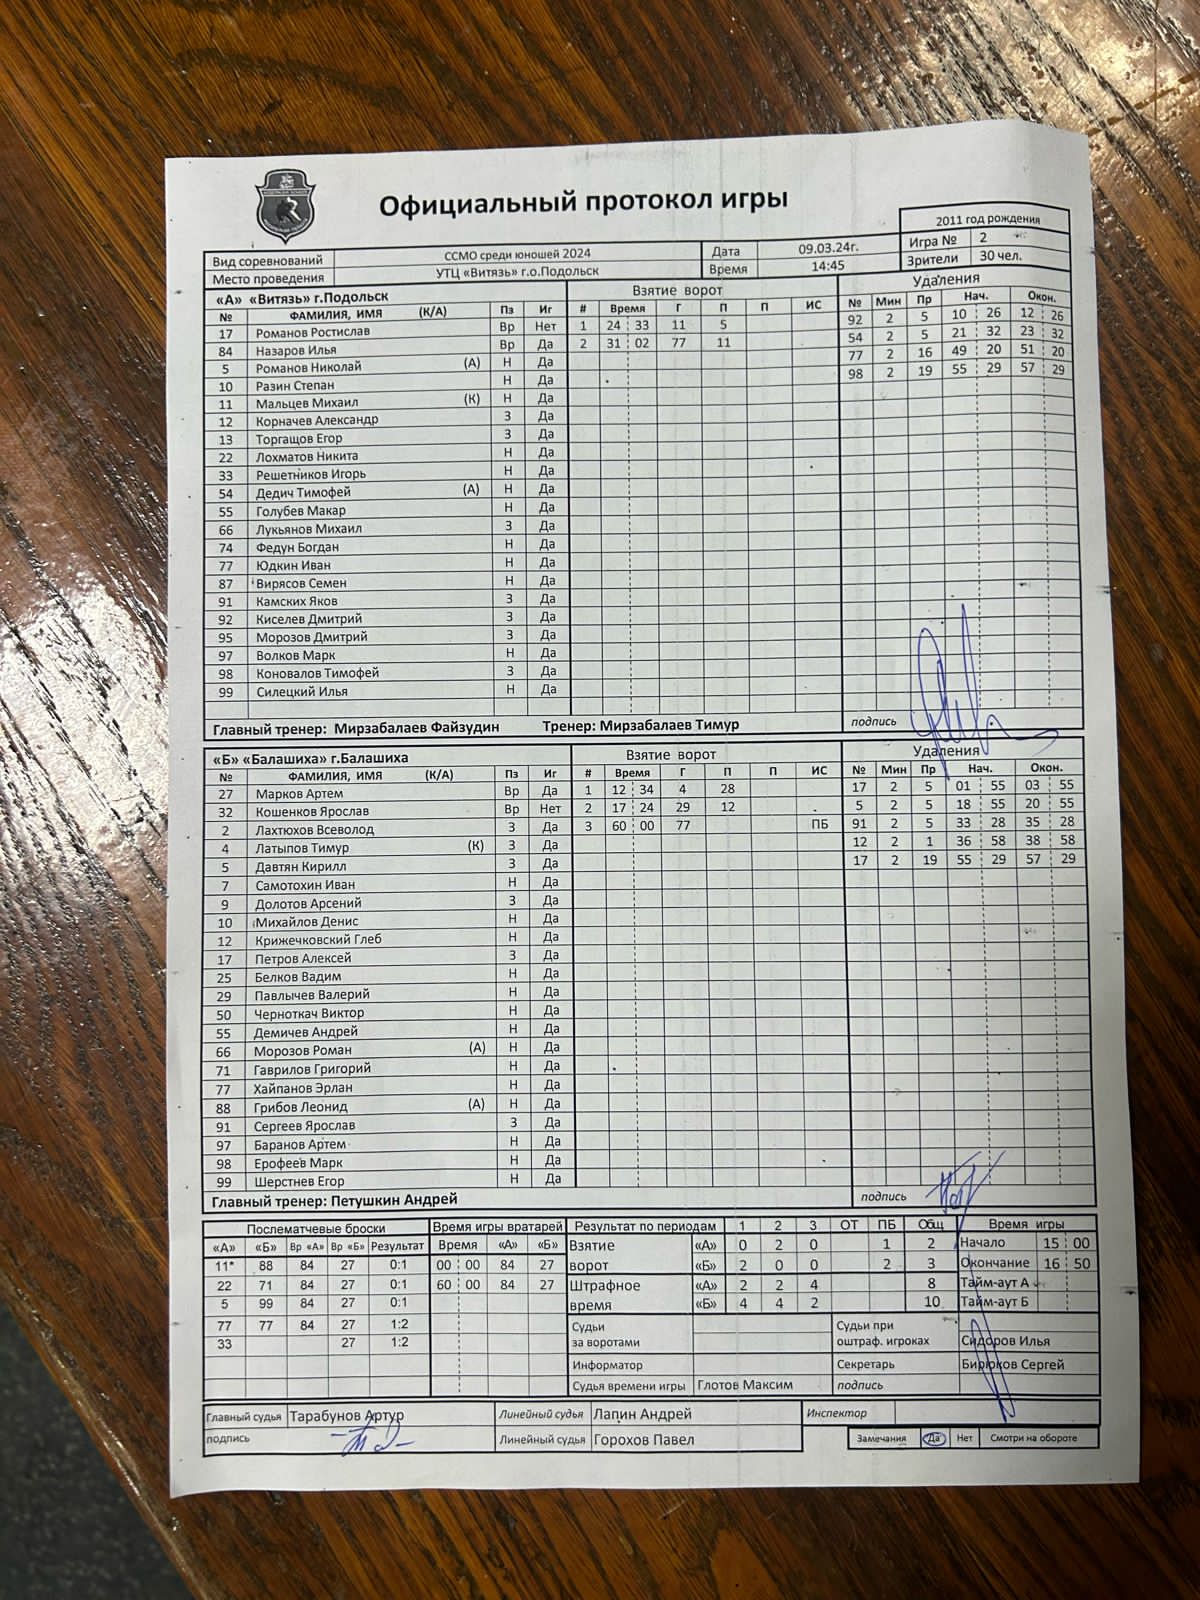 Официальный протокол игры
2011 год рождения
Вид соревнований ССМО среди юношей 2024 Дата 09.03.24г. Игра № 2
Место проведения УТЦ «Витязь» г.о.Подольск Время 14:45 Зрители 30 чел.
«А» «Витязь» г.Подольск Взятие ворот Удаления
№ ФАМИЛИЯ, ИМЯ (К/А) Пз Иг # Время Г П П ИС № Мин Пр Нач. Окон.
17 Романов Ростислав Вр Нет 1 24 33 11 5 92 2 5 10 26 12 26
84 Назаров Илья Вр Да 2 31 02 77 11 54 2 5 21 32 23 32
5 Романов Николай (А) Н Да 77 2 16 49 20 51 20
10 Разин Степан Н Да 98 2 19 55 29 57 29
11 Мальцев Михаил (К) Н Да
12 Корначев Александр З Да
13 Торгащов Егор З Да
22 Лохматов Никита Н Да
33 Решетников Игорь Н Да
54 Дедич Тимофей (А) Н Да
55 Голубев Макар Н Да
66 Лукьянов Михаил З Да
74 Федун Богдан Н Да
77 Юдкин Иван Н Да
87 Вирясов Семен Н Да
91 Камских Яков З Да
92 Киселев Дмитрий З Да
95 Морозов Дмитрий З Да
97 Волков Марк Н Да
98 Коновалов Тимофей З Да
99 Силецкий Илья Н Да
Главный тренер: Мирзабалаев Файзудин Тренер: Мирзабалаев Тимур подпись
«Б» «Балашиха» г.Балашиха Взятие ворот Удаления
№ ФАМИЛИЯ, ИМЯ (К/А) Пз Иг # Время Г П П ИС № Мин Пр Нач. Окон.
27 Марков Артем Вр Да 1 12 34 4 28 17 2 5 01 55 03 55
32 Кошенков Ярослав Вр Нет 2 17 24 29 12 5 2 5 18 55 20 55
2 Лахтюхов Всеволод З Да 3 60 00 77 ПБ 91 2 5 33 28 35 28
4 Латыпов Тимур (К) З Да 12 2 1 36 58 38 58
5 Давтян Кирилл З Да 17 2 19 55 29 57 29
7 Самотохин Иван Н Да
9 Долотов Арсений З Да
10 Михайлов Денис Н Да
12 Крижечковский Глеб Н Да
17 Петров Алексей З Да
25 Белков Вадим Н Да
29 Павлычев Валерий Н Да
50 Черноткач Виктор Н Да
55 Демичев Андрей Н Да
66 Морозов Роман (А) Н Да
71 Гаврилов Григорий Н Да
77 Хайпанов Эрлан Н Да
88 Грибов Леонид (А) Н Да
91 Сергеев Ярослав З Да
97 Баранов Артем Н Да
98 Ерофеев Марк Н Да
99 Шерстнев Егор Н Да
Главный тренер: Петушкин Андрей подпись
Послематчевые броски Время игры вратарей Результат по периодам 1 2 3 ОТ ПБ Общ Время игры
«А» «Б» Вр «А» Вр «Б» Результат Время «А» «Б» Взятие «А» 0 2 0 1 2 Начало 15 00
11* 88 84 27 0:1 00 00 84 27 ворот «Б» 2 0 0 2 3 Окончание 16 50
22 71 84 27 0:1 60 00 84 27 Штрафное «А» 2 2 4 8 Тайм-аут А
5 99 84 27 0:1 время «Б» 4 4 2 10 Тайм-аут Б
77 77 84 27 1:2 Судьи за воротами Судьи при оштраф. игроках Сидоров Илья
33 27 1:2
Информатор Секретарь Бирюков Сергей
Судья времени игры Глотов Максим подпись
Главный судья Тарабунов Артур Линейный судья Лапин Андрей Инспектор
подпись Линейный судья Горохов Павел Замечания Да Нет Смотри на обороте